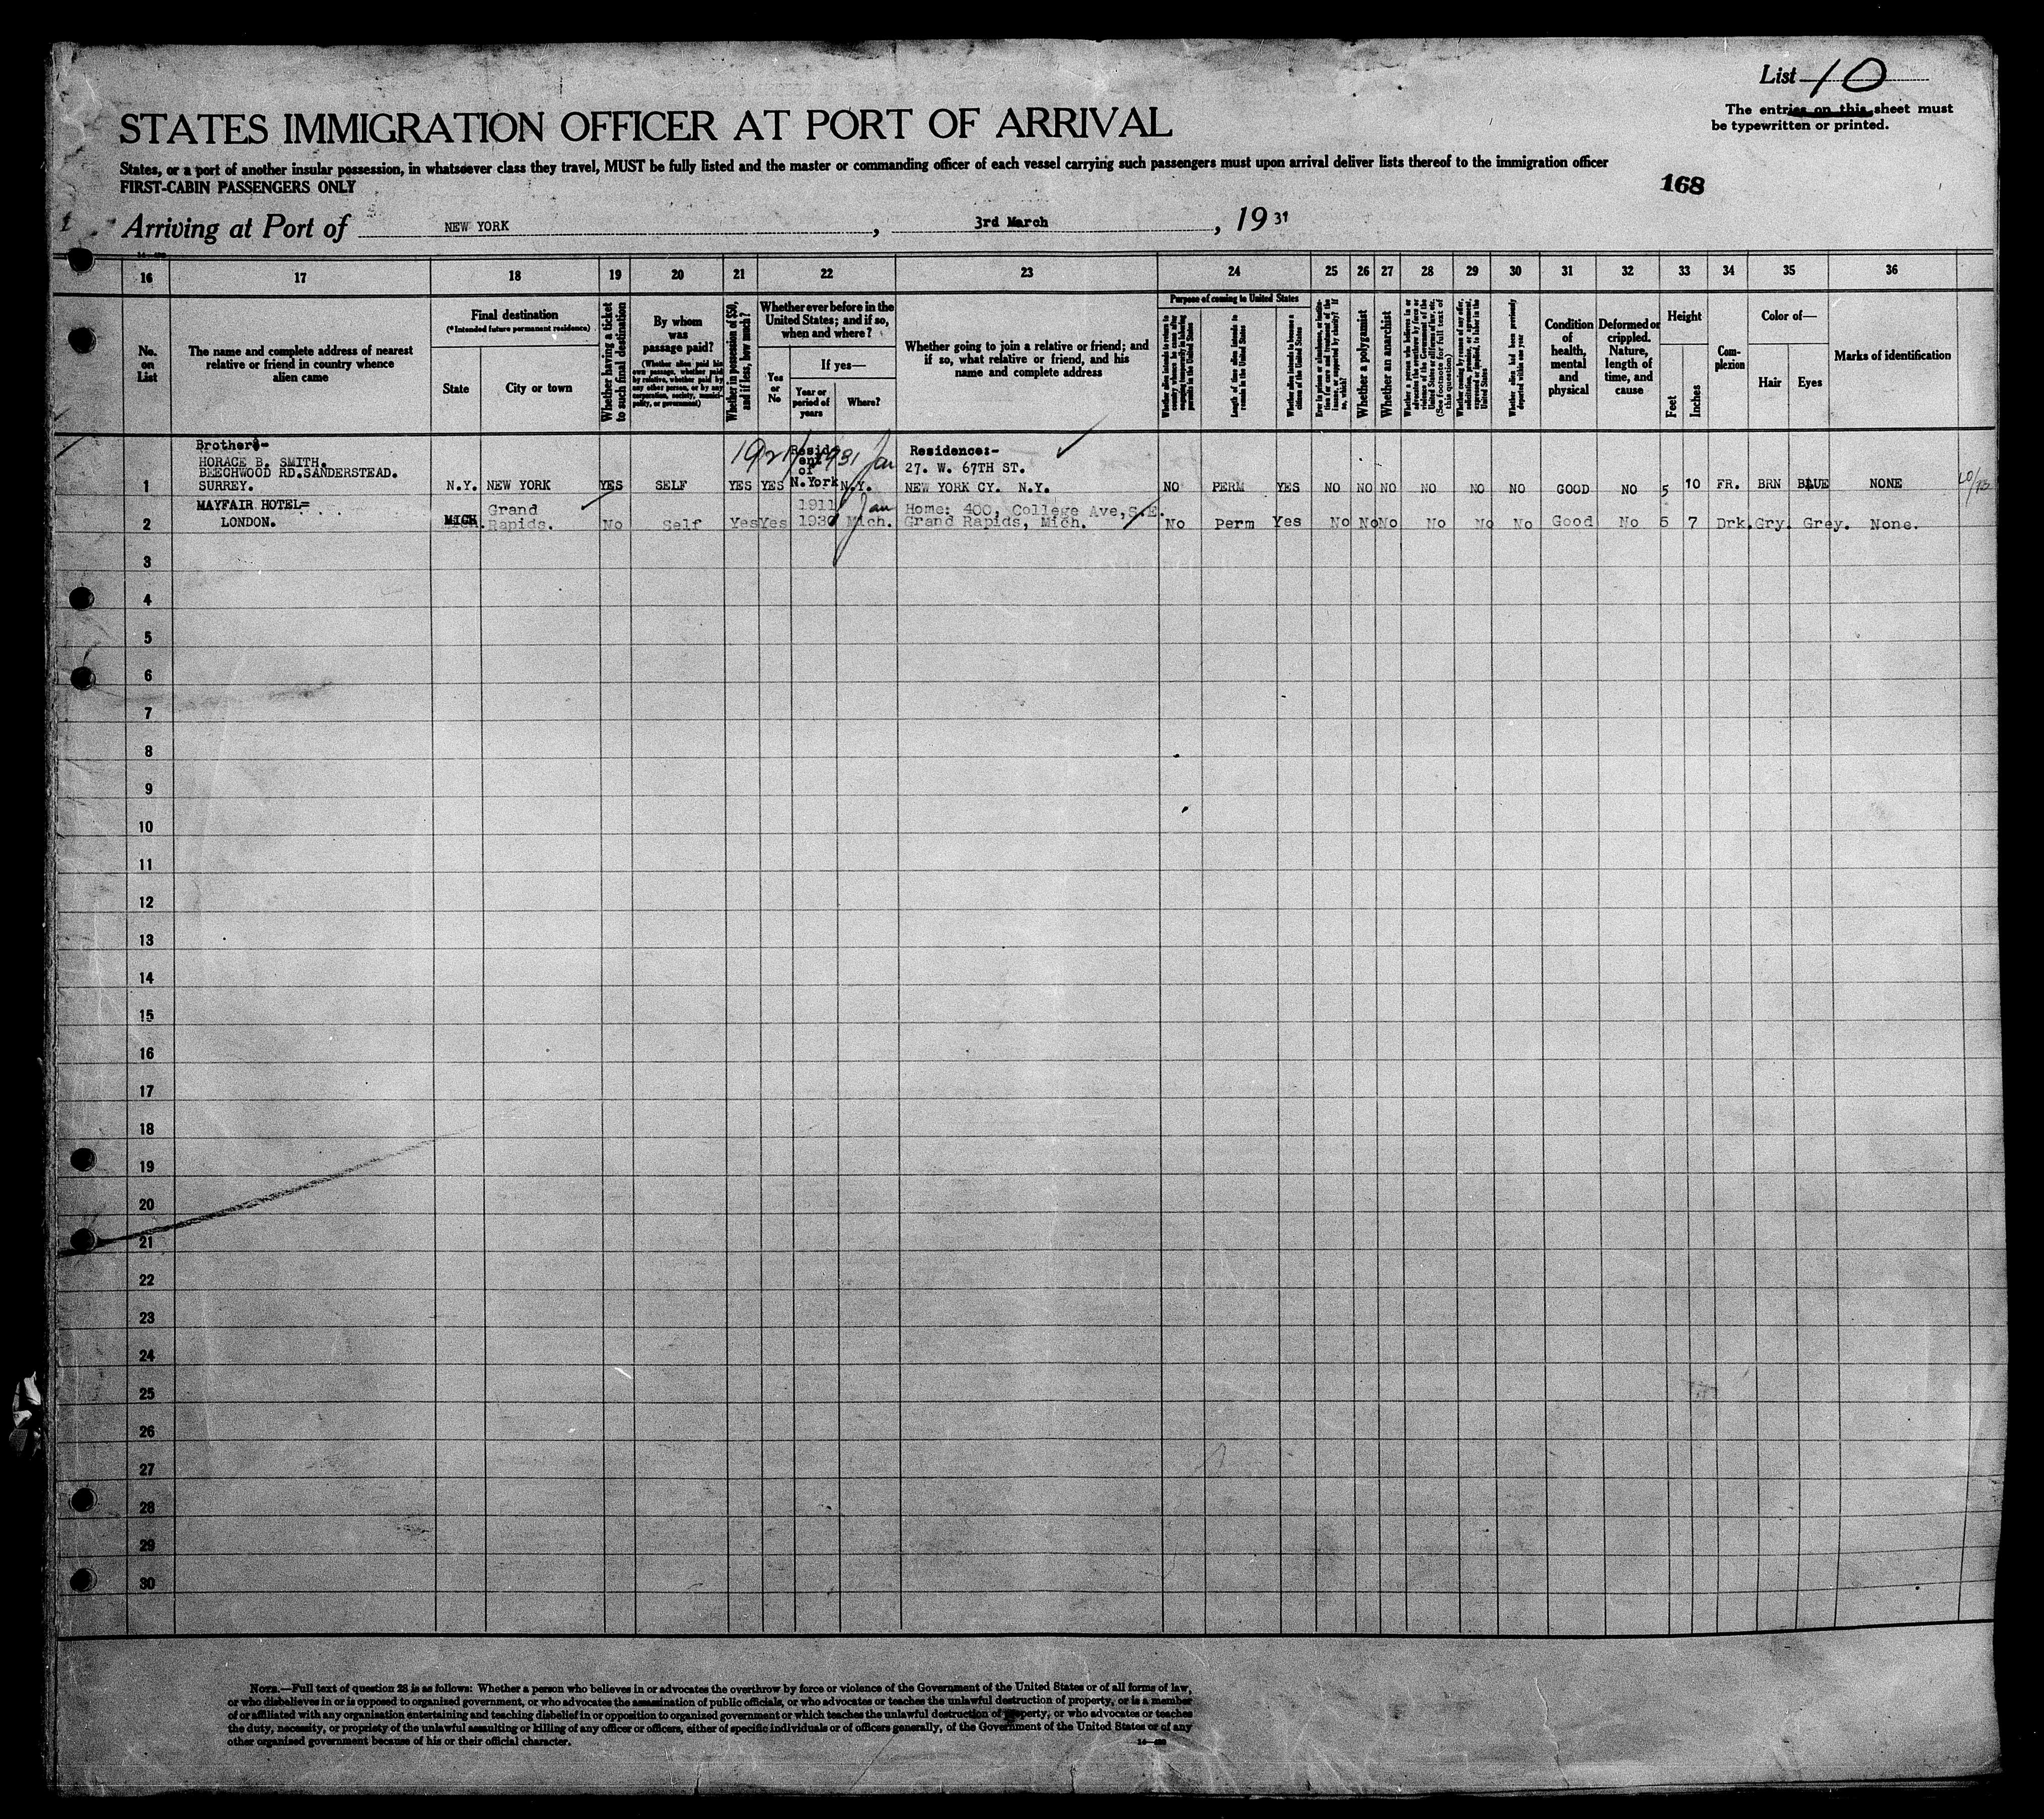 List 10
The entries on this sheet must
be typewritten or printed.
STATES IMMIGRATION OFFICER AT PORT OF ARRIVAL
States, or a port of another insular possession, in whatsoever class they travel, MUST be fully listed and the master or commanding officer of each vessel carrying such passengers must upon arrival deliver lists thereof to the immigration officer
FIRST-CABIN PASSENGERS ONLY
168
Arriving at Port of NEW YORK, 3rd March, 1931
16 17 18 19 20 21 22 23 24 25 26 27 28 29 30 31 32 33 34 35 36
No. on List
The name and complete address of nearest
relative or friend in country whence
alien came
Final destination
(*Intended future permanent residence)
State
City or town
Whether having a ticket
to such final destination
By whom
was
passage paid?
(Whether alien paid his
own passage, whether paid
by relative, whether paid by
any other person, or by any
corporation, society, munici-
pality, or government)
Whether in possession of $50,
and if less, how much?
Whether ever before in the
United States; and if so,
when and where?
Yes
or
No
If yes—
Year or
period of
years
Where?
Whether going to join a relative or friend; and
if so, what relative or friend, and his
name and complete address
Purpose of coming to United States
Whether alien intends to return to
country whence he came after
engaging temporarily in laboring
pursuits in the United States
Length of time alien intends to
remain in the United States
Whether alien intends to become a
citizen of the United States
Whether a polygamist
Whether an anarchist
Whether alien had been previously
deported within one year
Condition
of
health,
mental
and
physical
Deformed or
crippled.
Nature,
length of
time, and
cause
Height
Feet
Inches
Com-
plexion
Color of—
Hair
Eyes
Marks of identification
Brother:-
HORACE B. SMITH.
BEECHWOOD RD. SANDERSTEAD.
SURREY.
1 N.Y. NEW YORK YES SELF YES YES
1921/1931 Jan
Resid
ent
of
N.York N.Y.
Residence:-
27. W. 67TH ST.
NEW YORK CY. N.Y.
NO PERM YES NO NO NO NO NO NO GOOD NO 5 10 FR. BRN BLUE NONE
MAYFAIR HOTEL=
LONDON.
2 MICH. Grand
Rapids. No Self Yes Yes
1911 Jan
1930 Mich.
Home: 400, College Ave, S.E.
Grand Rapids, Mich.
No Perm Yes No No No No No No Good No 5 7 Drk. Gry. Grey. None.
3
4
5
6
7
8
9
10
11
12
13
14
15
16
17
18
19
20
21
22
23
24
25
26
27
28
29
30
NOTE.—Full text of question 28 is as follows: Whether a person who believes in or advocates the overthrow by force or violence of the Government of the United States or of all forms of law,
or who disbelieves in or is opposed to organized government, or who advocates the assassination of public officials, or who advocates or teaches the unlawful destruction of property, or is a member
of or affiliated with any organization entertaining and teaching disbelief in or opposition to organized government or which teaches the unlawful destruction of property, or who advocates or teaches
the duty, necessity, or propriety of the unlawful assaulting or killing of any officer or officers, either of specific individuals or of officers generally, of the Government of the United States or of any
other organized government because of his or their official character.